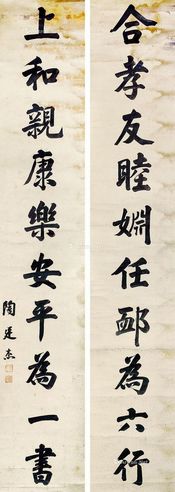 合孝友睦婣任卹為六行
上和親康樂安平為一書
陶廷杰